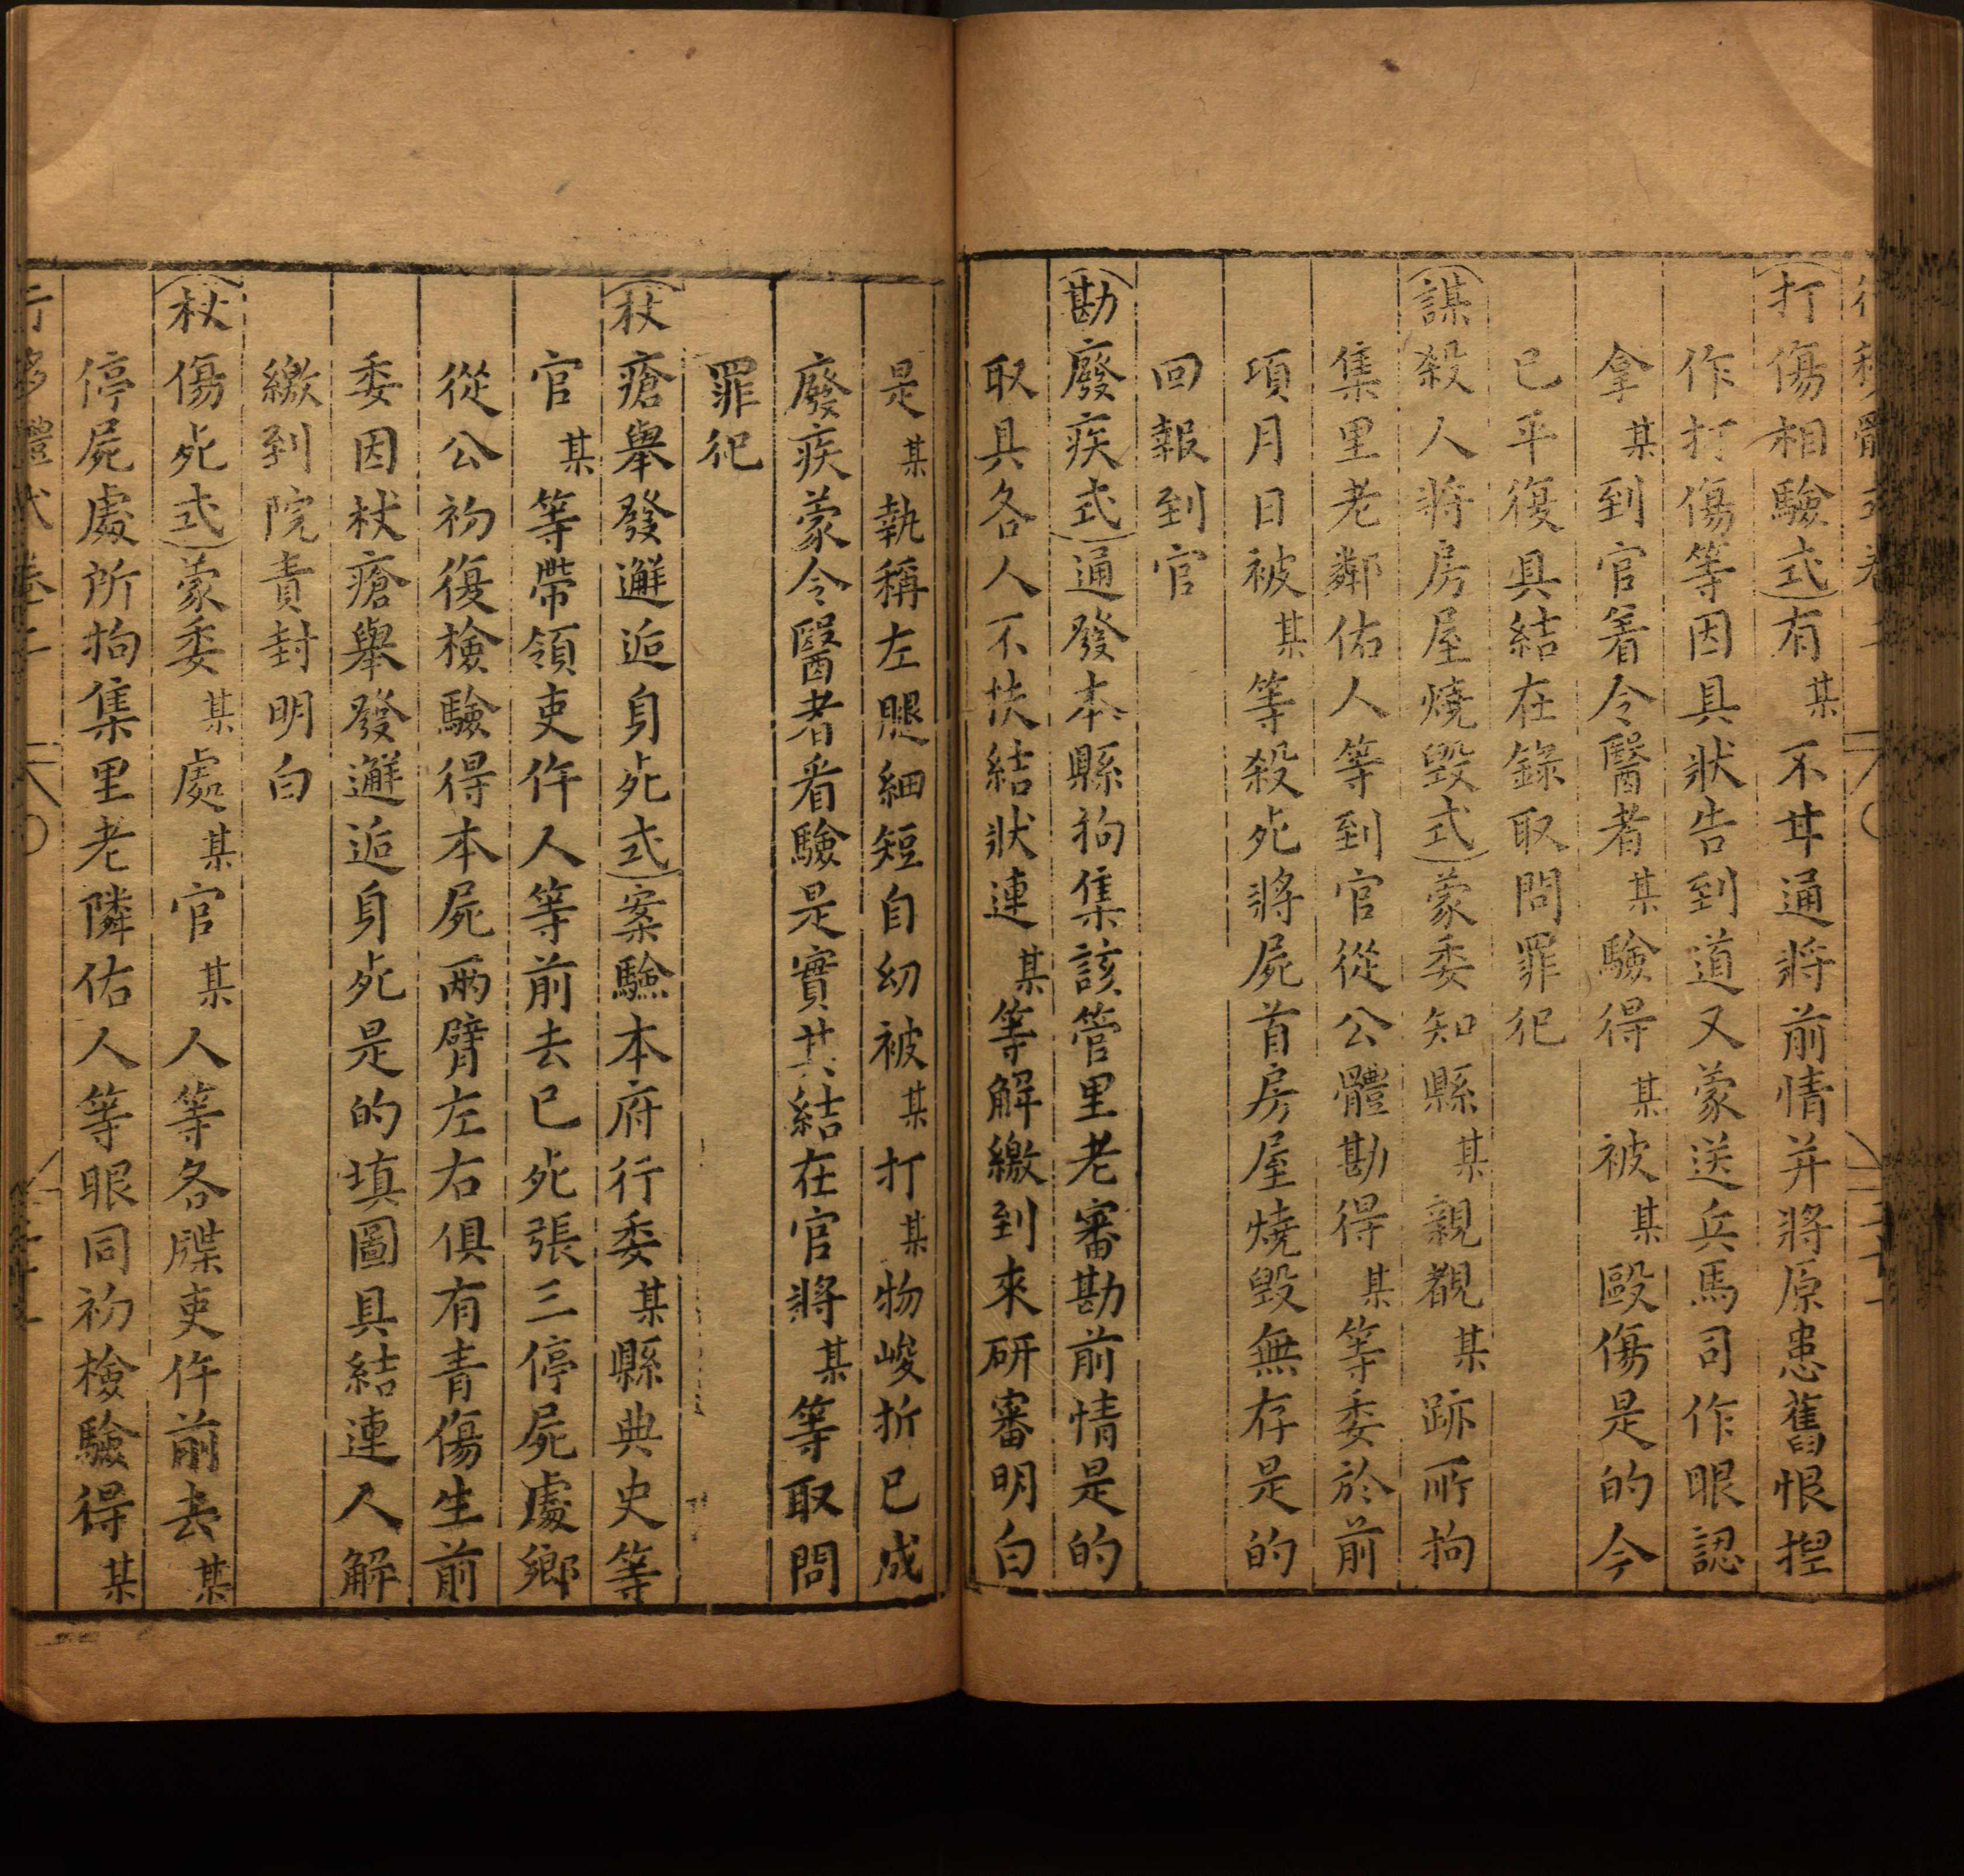 打傷相驗式有某不甘通將前情并將原患舊恨捏
作打傷等因具狀告到道又蒙送兵馬司作眼認
拿某到官着令醫者某驗得某被某毆傷是的今
已平復具結在錄取問罪犯
謀殺人將房屋燒毀式蒙委知縣某親覩某跡所拘
集里老鄰佑人等到官從公體勘得某等委於前
項月日被某等殺死將屍首房屋燒毀無存是的
回報到官
勘廢疾式通發本縣拘集該管里老審勘前情是的
取具各人不扶結狀連某等解繳到來研審明白
是某執稱左腿細短自幼被某打某物峻折已成
廢疾蒙令醫者看驗是實其結在官將某等取問
罪犯
杖瘡舉發邂逅身死式案驗本府行委某縣典史等
官某等帶領吏仵人等前去已死張三停屍處鄉
從公初復檢驗得本屍兩臂左右俱有青傷生前
委因杖瘡舉發邂逅身死是的填圖具結連人解
繳到院責封明白
杖傷死式蒙委某處某官某人等各牒吏仵前去某
停屍處所拘集里老隣佑人等眼同初檢驗得某